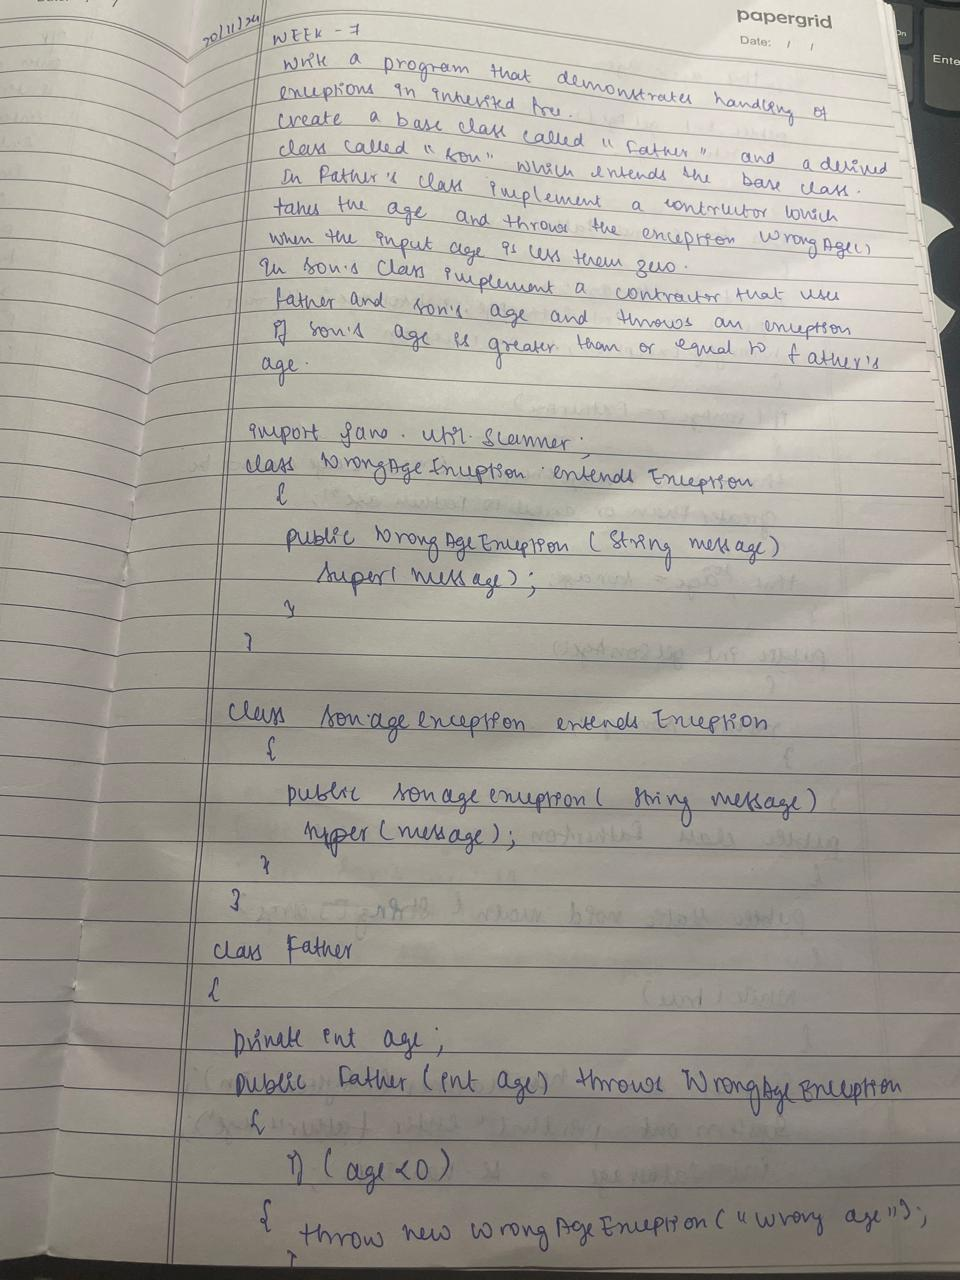 20/11/24
papergrid
Date: / /
WEEK - 7
Write a program that demonstrates handling of
exceptions in inherited tree.
Create a base class called "Father" and a derived
class called "Son" which extends the base class.
In Father's class implement a contructor which
takes the age and throws the exception WrongAge()
when the input age is less them zero.
In son's class implement a contractor that uses
father and son's age and throws an exception
if son's age is greater than or equal to father's
age.
import java.util.Scanner;
class WrongAgeException extends Exception
{
public WrongAgeException (String message)
super(message);
}
}
class sonageexception extends Exception
{
public sonageexception( String message)
super(message);
}
}
class Father
{
private int age;
public Father (int age) throws WrongAgeException
{
if (age<0)
{
throw new WrongAgeException("Wrong age");
}
Enter